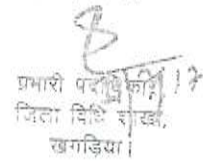 प्रभारी पदाधिकारी
जिला विधि शाखा,
खगड़िया।